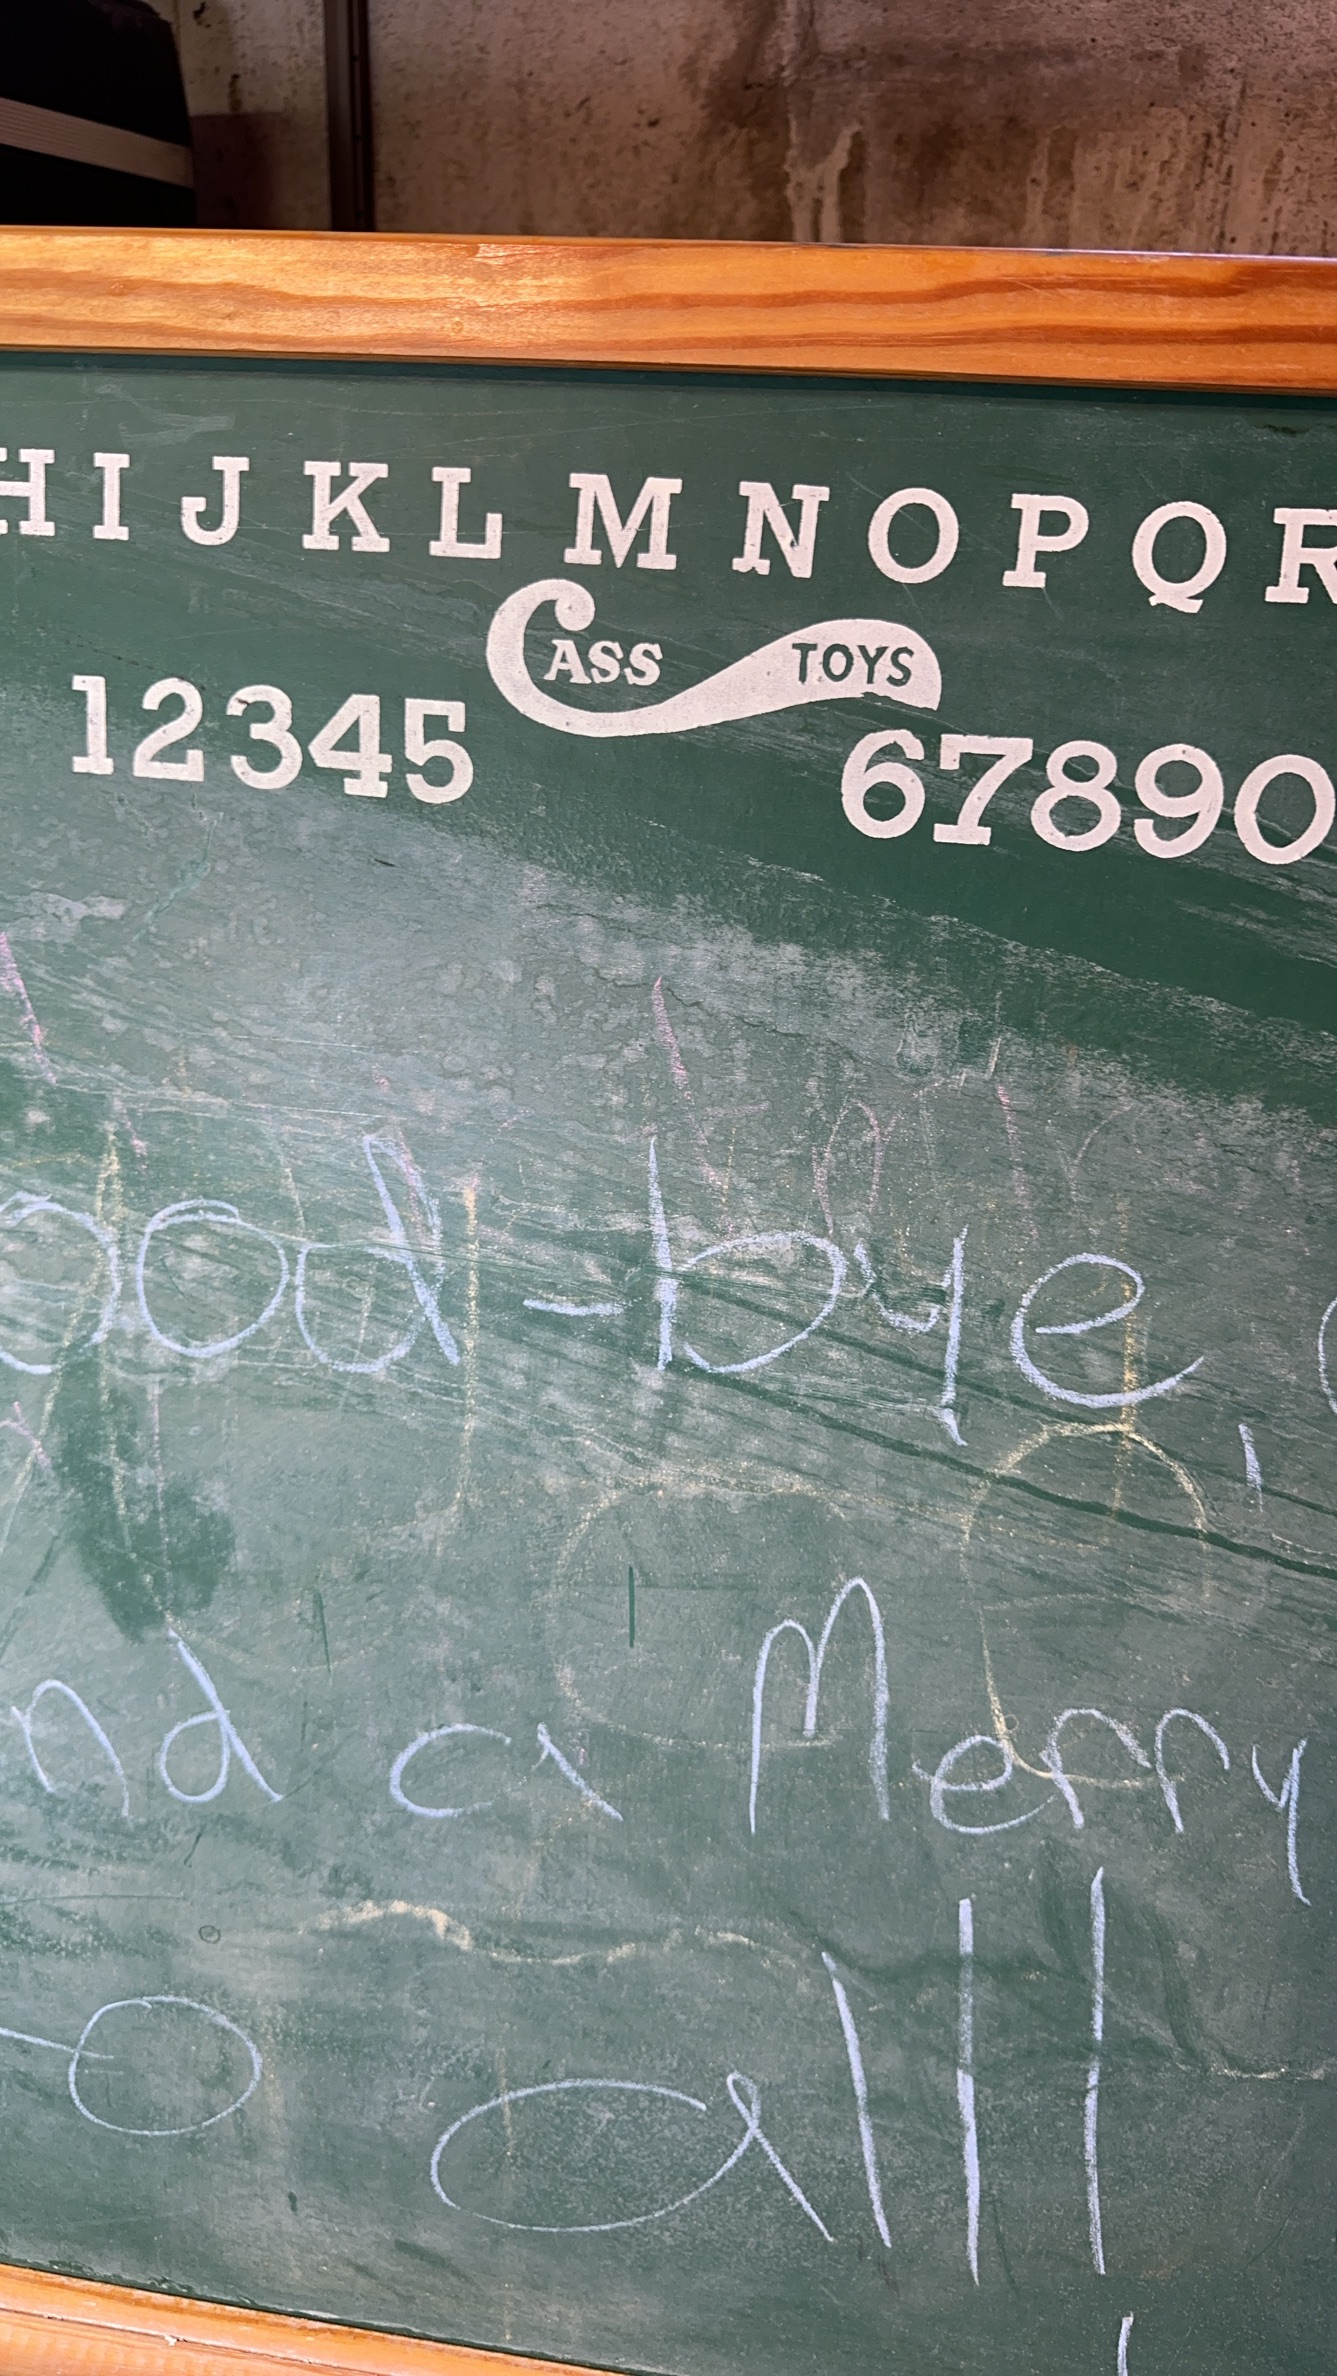 HIJKLMNOPQR
CASS TOYS
12345 67890
ood-bye,
nd a Merry
o all